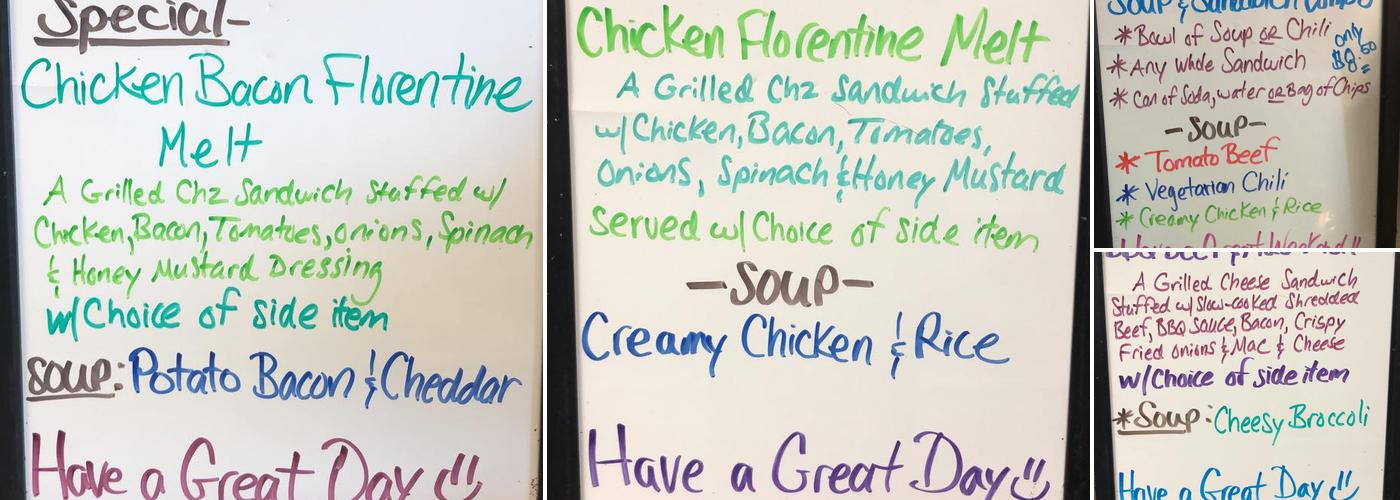 Special-
Chicken Bacon Florentine
Melt
A Grilled Chz Sandwich Stuffed w/
Chicken, Bacon, Tomatoes, onions, Spinach
& Honey Mustard Dressing
w/Choice of side item
Soup: Potato Bacon & Cheddar
Have a Great Day
Chicken Florentine Melt
A Grilled Chz Sandwich Stuffed
w/Chicken, Bacon, Tomatoes,
Onions, Spinach & Honey Mustard
Served w/Choice of side item
-Soup-
Creamy Chicken & Rice
Have a Great Day
Soup & Sandwich Combo
* Bowl of Soup or Chili
only
$8.50
* Any whole Sandwich
* Can of Soda, water or Bag of Chips
-Soup-
* Tomato Beef
* Vegetarian Chili
* Creamy Chicken & Rice
Have a Great Weekend!!
A Grilled Cheese Sandwich
Stuffed w/Slow-cooked Shredded
Beef, BBQ Sauce, Bacon, Crispy
Fried onions & Mac & Cheese
w/Choice of side item
*Soup: Cheesy Broccoli
Have a Great Day